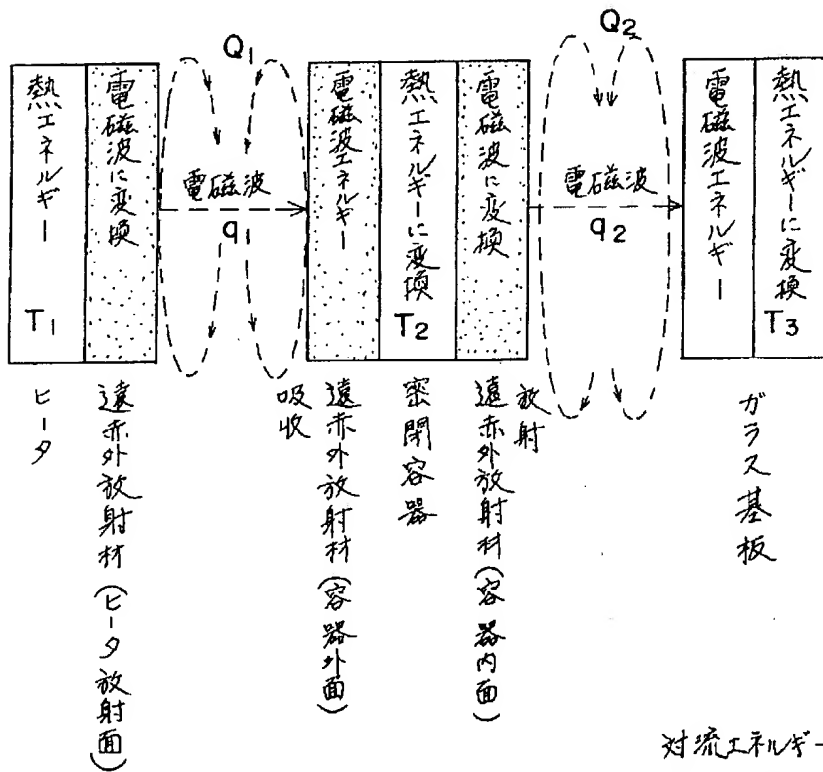 Q1
Q2
熱エネルギー
T1
電磁波に変換
電磁波
q
電磁波エネルギー
熱エネルギーに変換
T2
電磁波に変換
電磁波
q2
電磁波エネルギー
熱エネルギーに変換
T3
ヒータ
遠赤外放射材(ヒータ放射面)
吸収
遠赤外放射材(容器外面)
密閉容器
遠赤外放射材(容器内面)
放射
ガラス基板
対流エネルギー